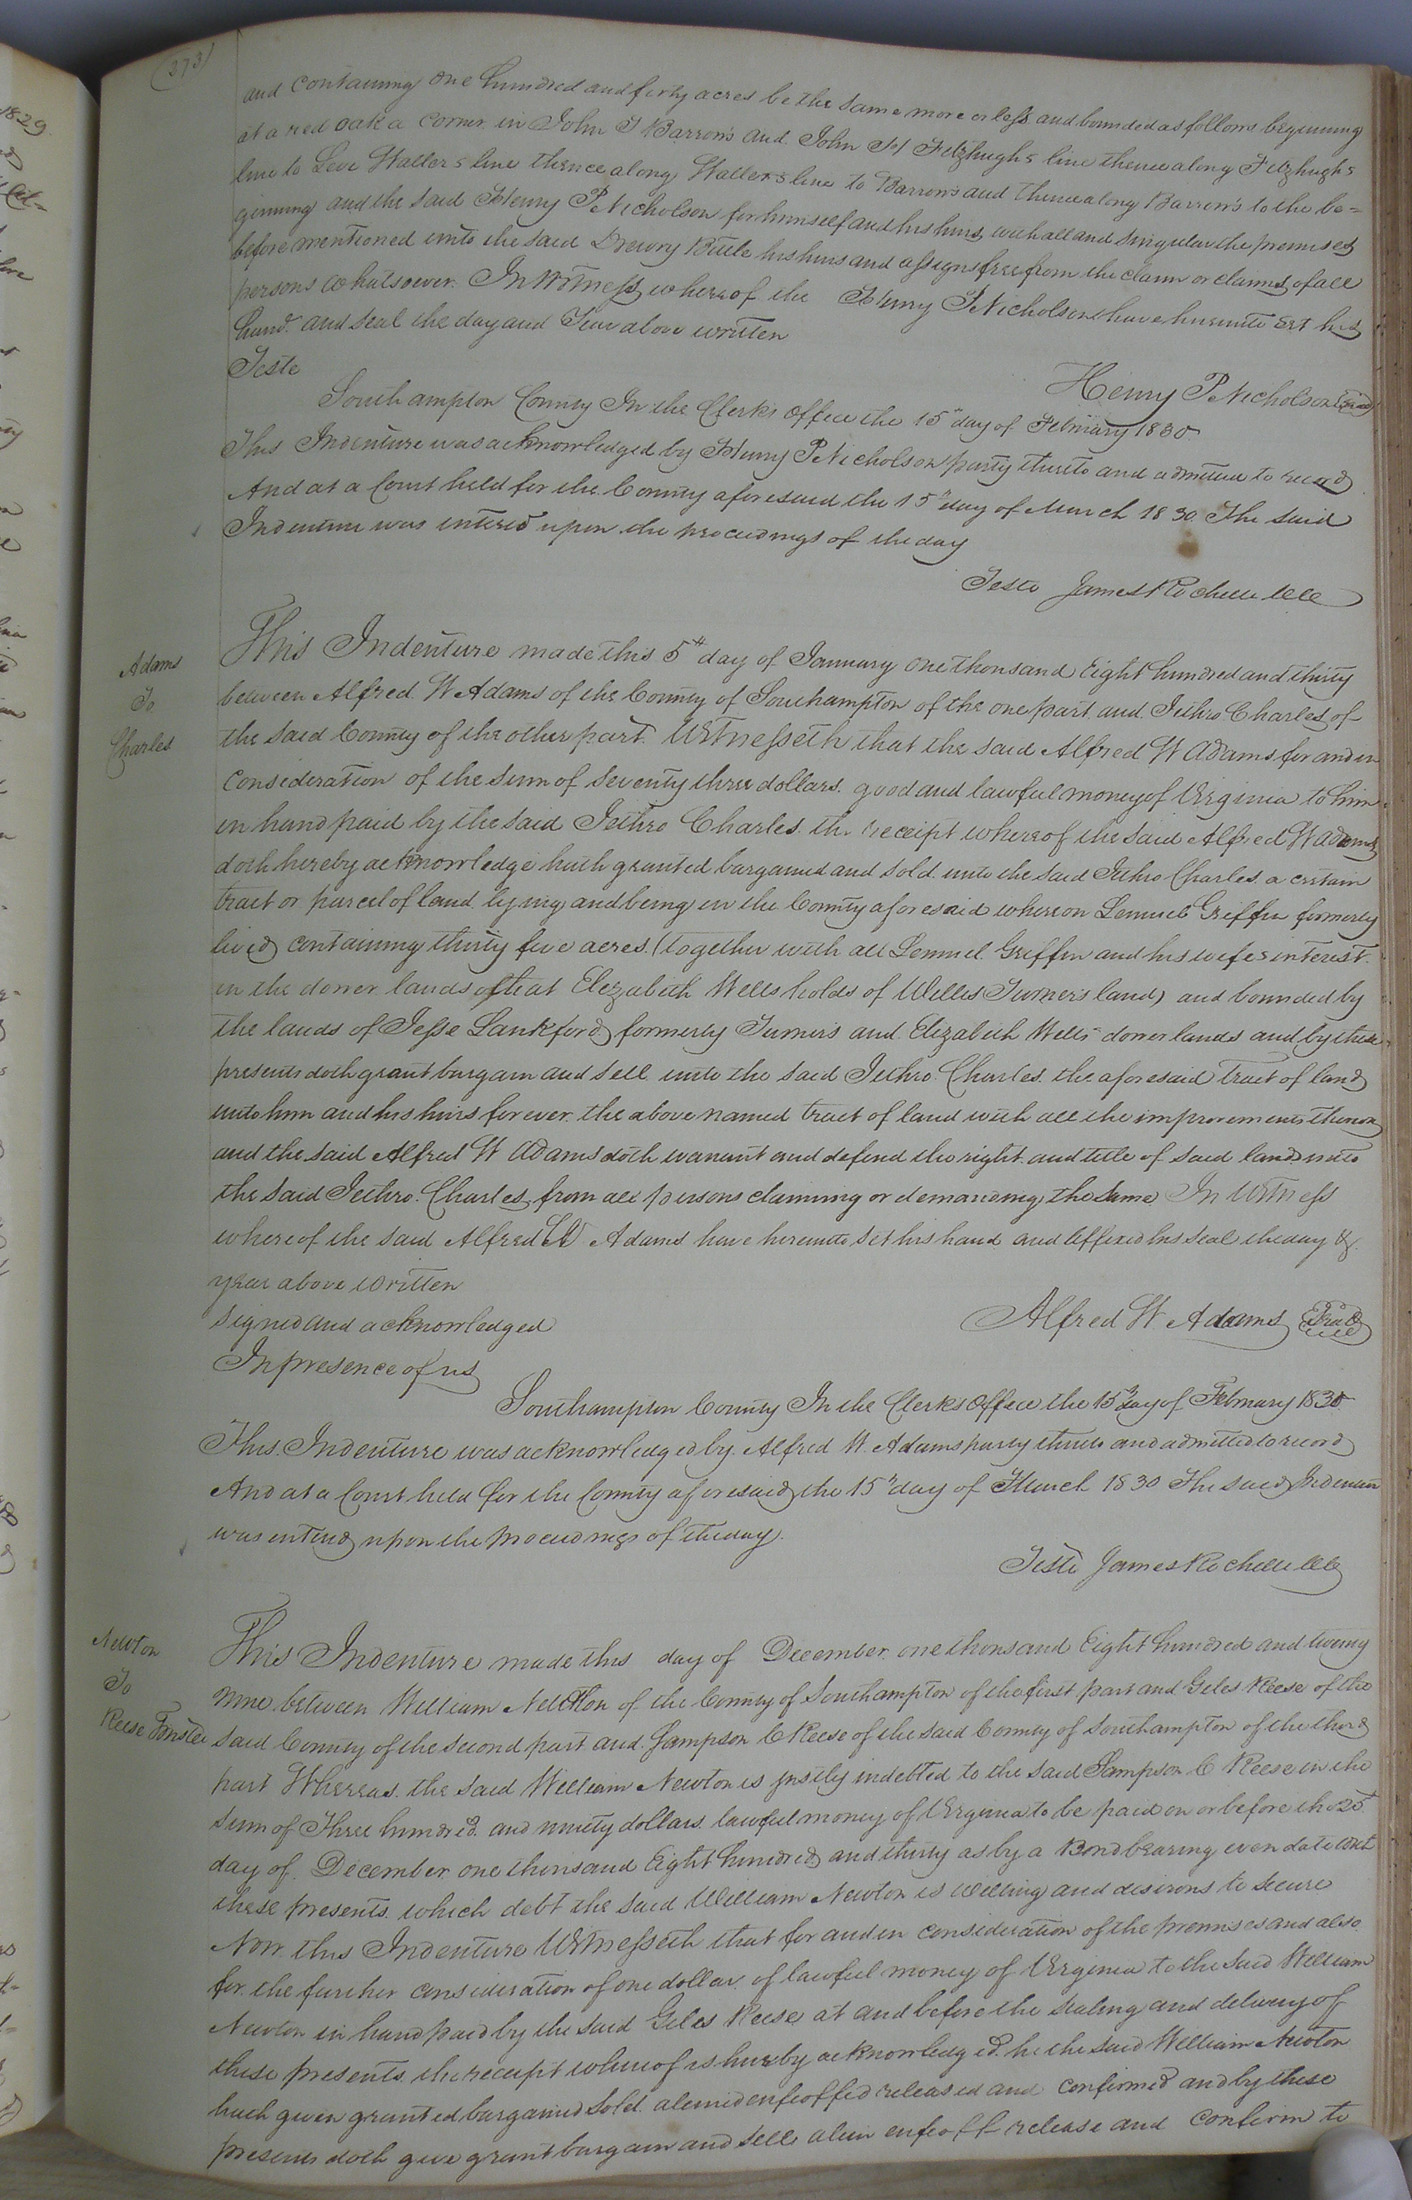 (373)
and containing one hundred and forty acres be the same more or less and bounded as follows beginning
at a red oak a corner in John T Barrow's and John H Fitzhugh's line thence along Fitzhugh's
line to Levi Waller's line thence along Waller's line to Barrow's and thence along Barrow's to the be=
ginning and the said Henry P Nicholson for himself and his heirs with all and singular the premises
before mentioned unto the said Drewry Bittle his heirs and assigns free from the claim or claims of all
persons whatsoever. In Witness whereof the Henry P Nicholson have hereunto set his
hand and seal the day and Year above written
Teste
Henry P Nicholson Seal
Southampton County In the Clerks Office the 15th day of February 1830
This Indenture was acknowledged by Henry P Nicholson party thereto and admitted to record
And at a Court held for the County aforesaid the 15th day of March 1830 The said
Indenture was entered upon the proceedings of the day
Teste James Rochelle
Adams
To
Charles
This Indenture made this 5th day of January one thousand Eight hundred and thirty
between Alfred W Adams of the County of Southampton of the one part and Jethro Charles of
the said County of the other part. Witnesseth that the said Alfred W Adams for and in
consideration of the sum of seventy three dollars good and lawful money of Virginia to him
in hand paid by the said Jethro Charles the receipt whereof the said Alfred W Adams
doth hereby acknowledge hath granted bargained and sold unto the said Jethro Charles a certain
tract or parcel of land lying and being in the County aforesaid whereon Lemuel Griffin formerly
lived containing thirty five acres (together with all Lemuel Griffin and his wifes interest
in the dower lands of that Elizabeth Wells holds of Willis Turner's land) and bounded by
the lands of Jesse Lankford formerly Turner's and Elizabeth Wells dower lands and by these
presents doth grant bargain and sell unto the said Jethro Charles the aforesaid tract of land
unto him and his heirs forever. the above named tract of land with all the improvements thereon
and the said Alfred W Adams doth warrant and defend the right and title of said land unto
the said Jethro Charles from all persons claiming or demanding the same In Witness
whereof the said Alfred W Adams have hereunto set his hand and affixed his seal the day &
year above written
Signed and acknowledged
Alfred W Adams Seal
In presence of us
Southampton County In the Clerks Office the 15th day of February 1830
This Indenture was acknowledged by Alfred W. Adams party thereto and admitted to record
And at a Court held for the County aforesaid the 15th day of March 1830 The said Indenture
was entered upon the proceedings of the day.
Teste James Rochelle
Newton
To
Reese Trustee
This Indenture made this day of December one thousand Eight hundred and twenty
nine between William Newton of the County of Southampton of the first part and Giles Reese of the
said County of the second part and Sampson C Reese of the said County of Southampton of the third
part Whereas the said William Newton is justly indebted to the said Sampson C Reese in the
sum of Three hundred and ninety dollars lawful money of Virginia to be paid on or before the 25th
day of December one thousand Eight hundred and thirty as by a Bond bearing even date with
these presents which debt the said William Newton is willing and desirous to secure
Now this Indenture Witnesseth that for and in consideration of the premises and also
for the further consideration of one dollar of lawful money of Virginia to the said William
Newton in hand paid by the said Giles Reese at and before the sealing and delivery of
these presents the receipt whereof is hereby acknowledged he the said William Newton
hath given granted bargained sold aliened enfeoffed released and confirmed and by these
presents doth give grant bargain and sell alien enfeoff release and confirm to